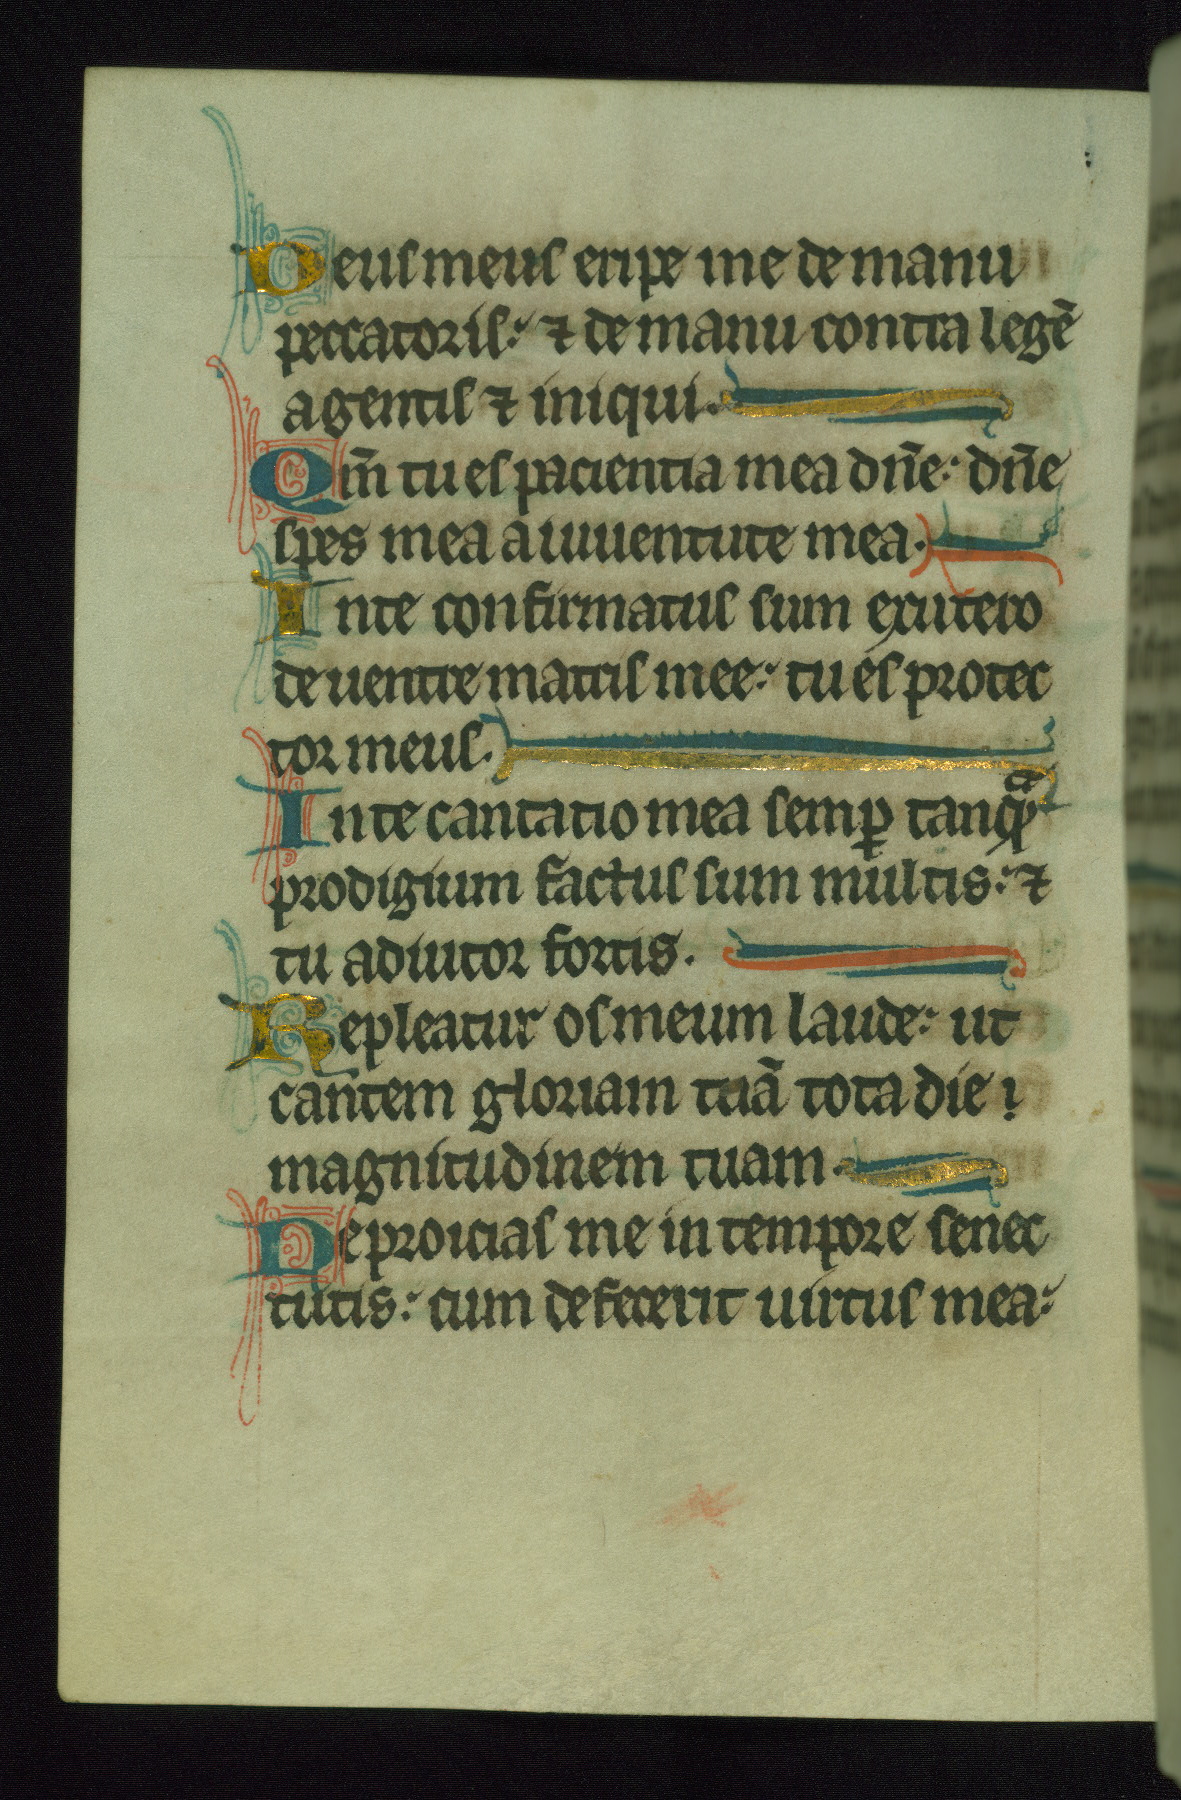 Deus meus eripe me de manu
peccatoris: ⁊ de manu contra legē
agentis ⁊ iniqui.
Qm̄ tu es paciencia mea dn̄e: dn̄e
spes mea a iuuentute mea.
In te confirmatus sum ex utero
de uentre matris mee: tu es protec
tor meus.
In te cantatio mea semꝑ tanqᵃ̄
prodigium factus sum multis: ⁊
tu adiutor fortis.
Repleatur os meum laude: ut
cantem gloriam tuā tota die
magnitudinem tuam.
Ne proicias me in tempore senec
tutis: cum defecerit uirtus mea: